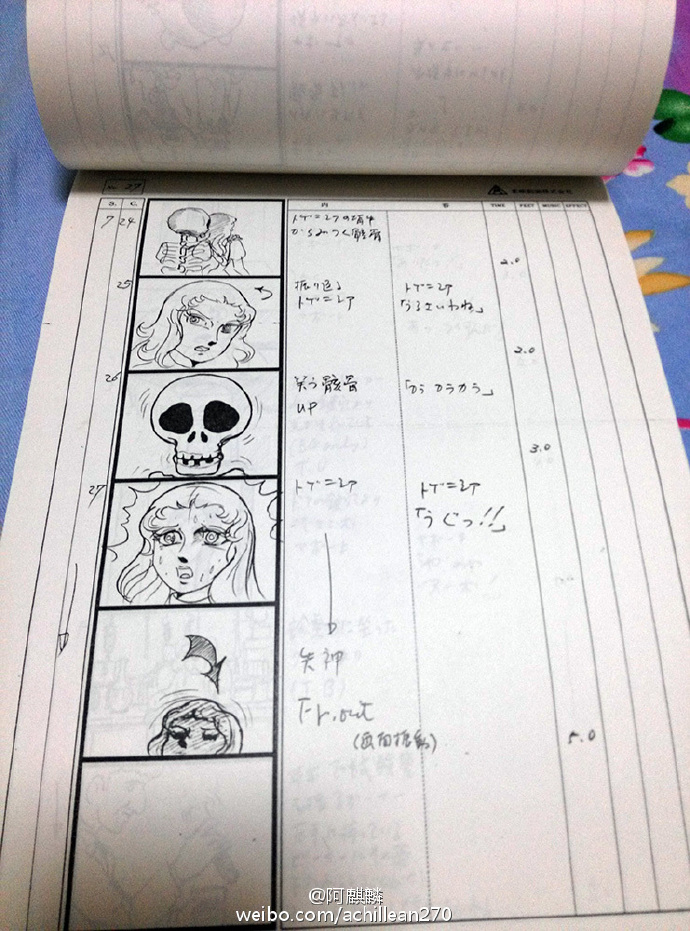 No. 27
S. C. 内 容 TIME FEET MUSIC EFFECT
7 24
からみつく骸骨
2.0
25
振り返る
トゲニア
トゲニア
「うるさいわね」
2.0
26
笑う骸骨
UP
「カラカラカラ」
3.0
27
トゲニア
トゲニア
「うぐっ!!」
失神
Fr. out
(画面振動)
5.0
@阿麒麟
weibo.com/achillean270